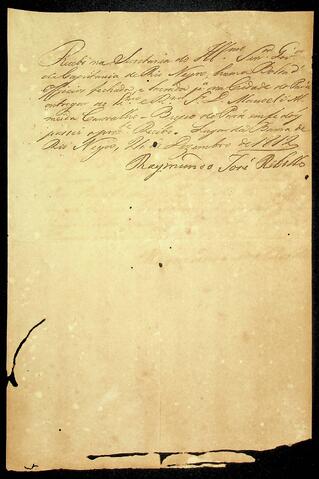 Recebi na Secretaria do Illmo Snr Gor
da Capitania do Rio Negro, huma Bolsa d'
Officios fechada, e lacrada p.ª na Cidade do Pará
entregar ao Illmo Snr Manoel
meida Carvalho Bispo do Pará em fe do q
passei o prez. Recibo. Lugar da Barra do
Rio Negro, de Dezembro de 1812
Raymundo José Rebello